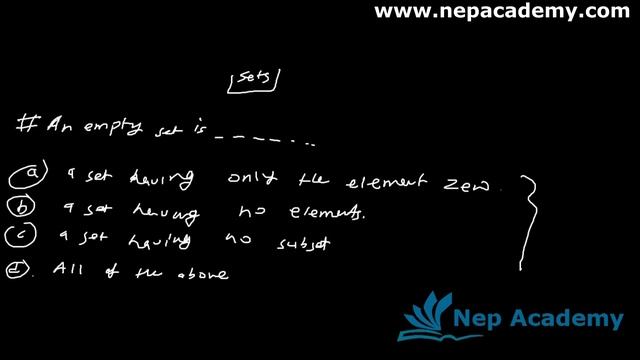 www.nepacademy.com
Sets
# An empty set is ______..
a) a set having only the element zero.
b) a set having no elements.
c) a set having no subset
d. All of the above
Nep Academy